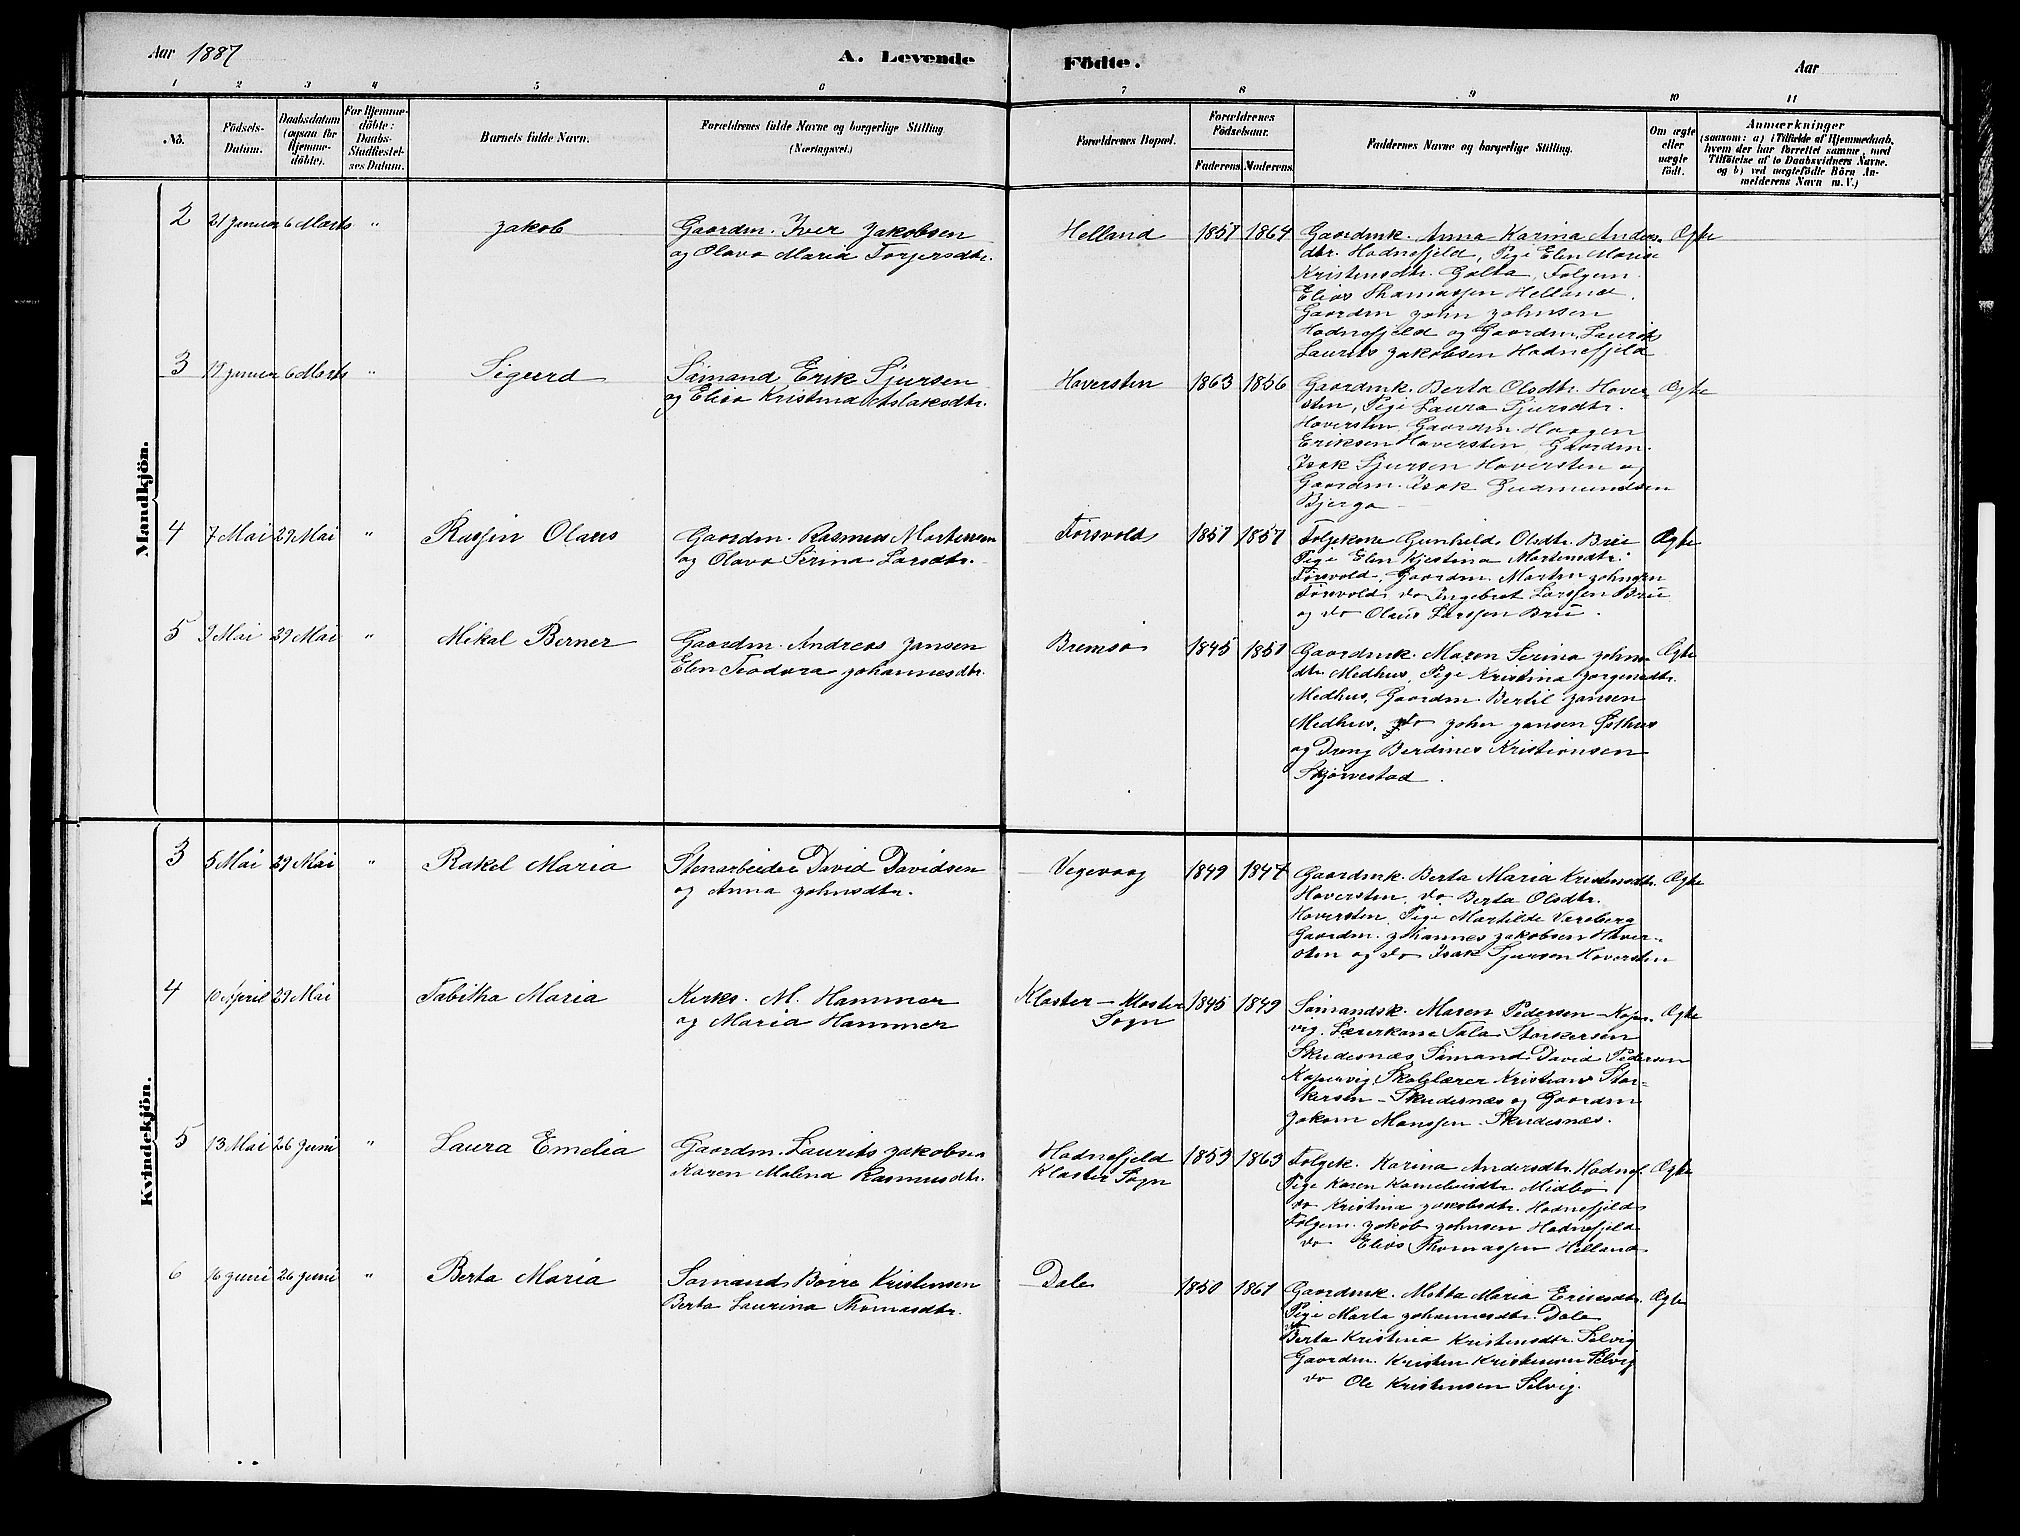 Aar 1887
A. Levende Födte.
Aar
1 2 3 4 5 6 7 8 9 10 11
No.
Födsels-
Datum.
Daabsdatum
(ogsaa for
Hjemme-
döbte).
For Hjemme-
döbte:
Daabs-
Stadfæstel-
ses Datum.
Barnets fulde Navn.
Forældrenes fulde Navne og borgerlige Stilling
(Næringsvei.)
Forældrenes Bopæl.
Forældrenes
Födselsaar.
Faderens. Moderens.
Faddernes Navne og borgerlige Stilling.
Om ægte
eller
uægte
født.
Anmærkninger
(saasom: a) i Tilfælde af Hjemmedaab,
hvem der har forrettet samme, med
Tilföielse af to Daabsvidners Navne.
og b) ved uægtefödte Börn An-
melderens Navn m. V.)
Mandkjön.
2 21 Januar 6 Marts " Jakob
Gaardm. Iver Jakobsen
og Olava Maria Torjersdtr.
Helland 1857 1864
Gaardmk. Anna Karina Anders-
dtr. Hodnefjeld, Pige Elen Maria
Kristensdtr. Galta, Folgem.
Elias Thomassen Helland,
Gaardm John Johnsen
Hodnefjeld og Gaardm. Laurits
Laurits Jakobsen Hodnefjeld
Ægte
3 17 Januar 6 Marts " Sigurd
Sömand Erik Sjursen
og Elisa Kristina Aslaksdtr.
Haversten 1863 1856
Gaardmk. Berta Olsdtr. Haver
sten, Pige Laura Sjursdtr.
Haversten, Gaardm. Haagen
Eriksen Haversten, Gaardm.
Isak Sjursen Haversten og
Gaardm. Isak Gudmundsen
Bjerga
Ægte
4 7 Mai 29 Mai " Rasjin Olaus
Gaardm. Rasmus Mortensen
og Olava Serina Larsdtr.
Førsvold 1857 1857
Folgekone Gunhild Olsdtr. Bru
Pige Elen Kjestina Mortensdtr.
Førsvold, Gaardm. Morten Johnsen
Førsvold, do Ingebret Larssen Bru
og do Olaus Larssen Bru.
Ægte
5 9 Mai 29 Mai " Mikal Berner
Gaardm. Andreas Jansen
Elen Teodora Johannesdtr.
Bremsø 1845 1851
Gaardmk. Maren Serina Johns
dtr. Medhus, Pige Kristina Jørgensdtr.
Medhus, Gaardm. Bertil Jansen
Medhus, do John Jansen
og Dreng Berdines Kristiansen
Skjørvestad.
Ægte
Kvindekjön.
3 5 Mai 29 Mai " Rakel Maria
Stenarbeider David Davidsen
og Anna Johnsdtr.
Vegevaag 1849 1847
Gaardmk. Berta Maria Kristensdtr.
Haversten, do Berta Olsdtr.
Haversten, Pige Martilde Varaberg
Gaardm. Johannes Jakobsen Haver-
sten og do Isak Sjursen Haversten
Ægte
4 10 April 29 Mai Tabitha Maria
Kirks. M. Hammer
og Maria Hammer
Kloster - Kloster
Sogn
1845 1849
Sömandsk. Maren Pedersen - Koper-
vig, Lærerkone Tala Storkersen
Skudesnæs Sömand David Pedersen
Kopervig, Skolelærer Kristian Stor-
kersen - Skudesnæs og Gaardm
Jakom Monssen Skudesnæs.
Ægte
5 13 Mai 26 Juni " Laura Emelia
Gaardm. Laurits Jakobsen
Karen Malena Rasmusdtr.
Hodnefjeld
Kloster Sogn
1853 1863
Folgek. Karina Andersdtr. Hodnef.
Pige Karen Korneliusdtr Midbø
do Kristina Jakobsdtr. Hodnefjeld
Folgem. Jakob Johnsen Hodnefjeld
do Elias Thomassen Helland
Ægte
6 16 Juni 26 Juni " Berta Maria
Sömand Börre Kristensen
Berta Laurina Thomasdtr.
Dale 1850 1861
Gaardmk. Metta Maria Eriksdtr.
Pige Marta Johannesdtr. Dale
do
Berta Kristina Kristensdtr. Selvig
Gaardm. Kristen Kristensen Selvig
do Ole Kristensen Selvig.
Ægte